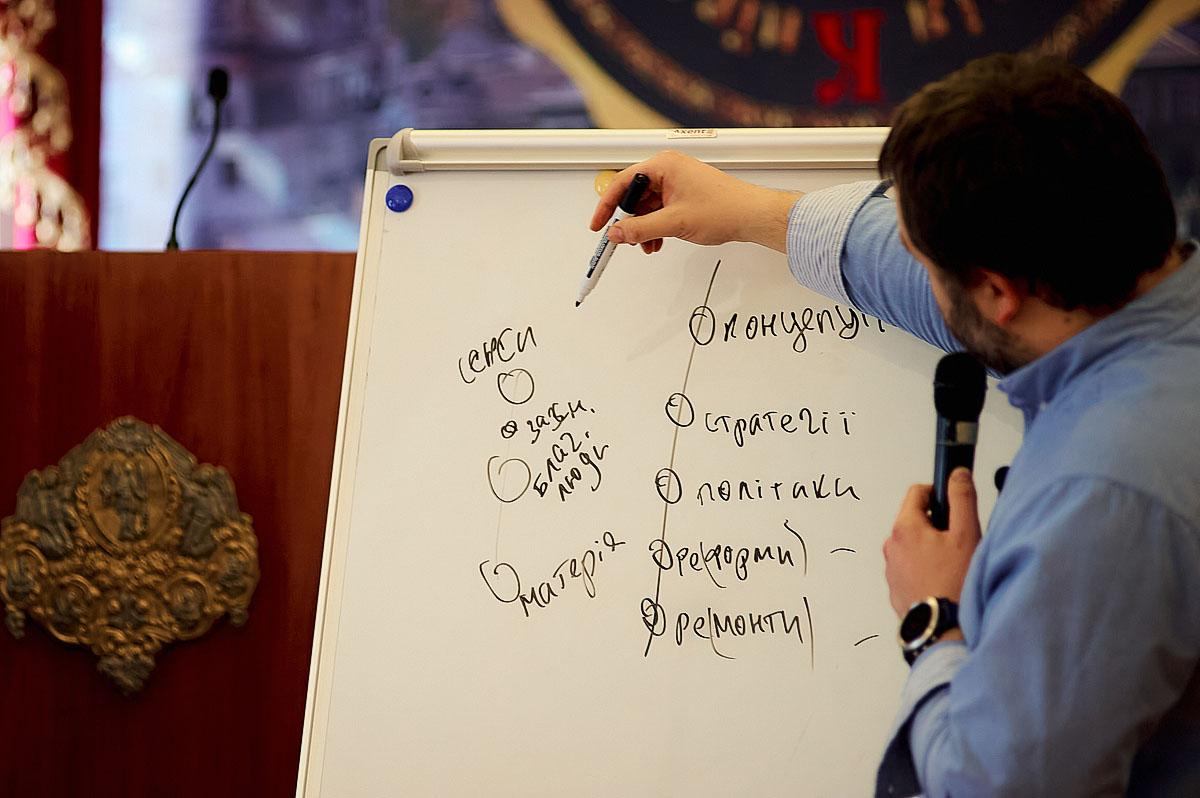 Axent
К
сенси
зазн.
благ.
люди
матерія
концепції
стратегії
політики
ре(форми)
ре(монти)